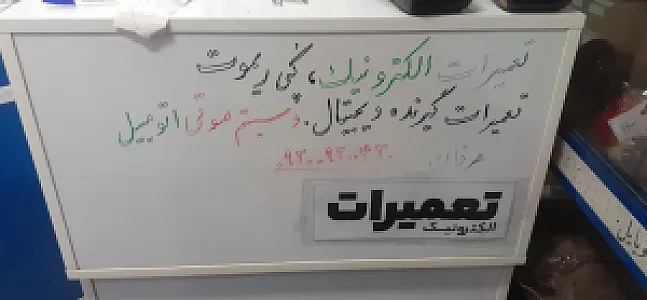 تعمیرات الکترونیک، کپی ریموت
تعمیرات گیرنده دیجیتال. وسیستم صوتی اتومبیل
عرفان
تعمیرات
الکترونیک